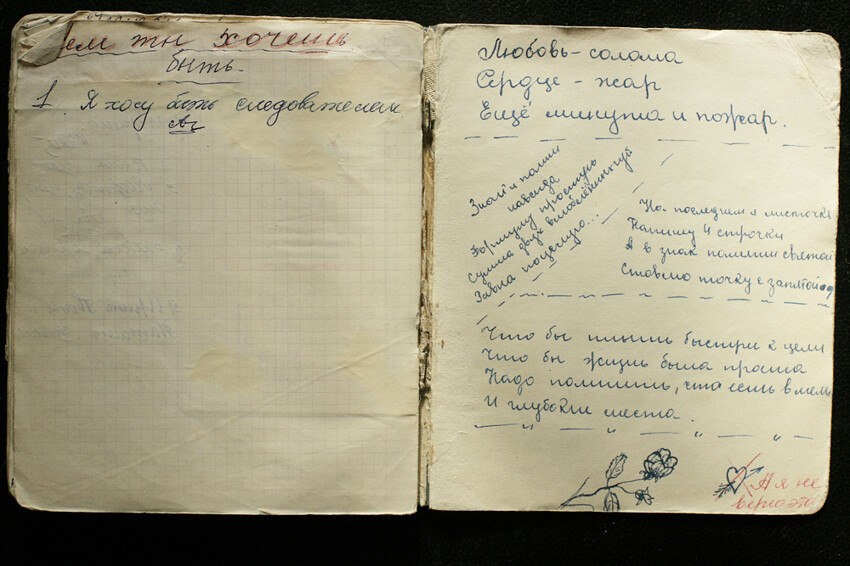 ем ты хочешь
быть.
1 Я хочу быть следователем
Любовь - солома
Сердце - жар
Ещё минута и пожар.
Знай и помни
навсегда
Формулу простую
Сумма двух влюблённых губ
Равна поцелую...
На последнем я листочке
Напишу 4 строчки
А в знак памяти святой
Ставлю точку с запятой
Что бы плыть быстри к цели
Что бы жизнь была проста
Надо помнить, что есть в мели
И глубокие места.
А я не
верю это